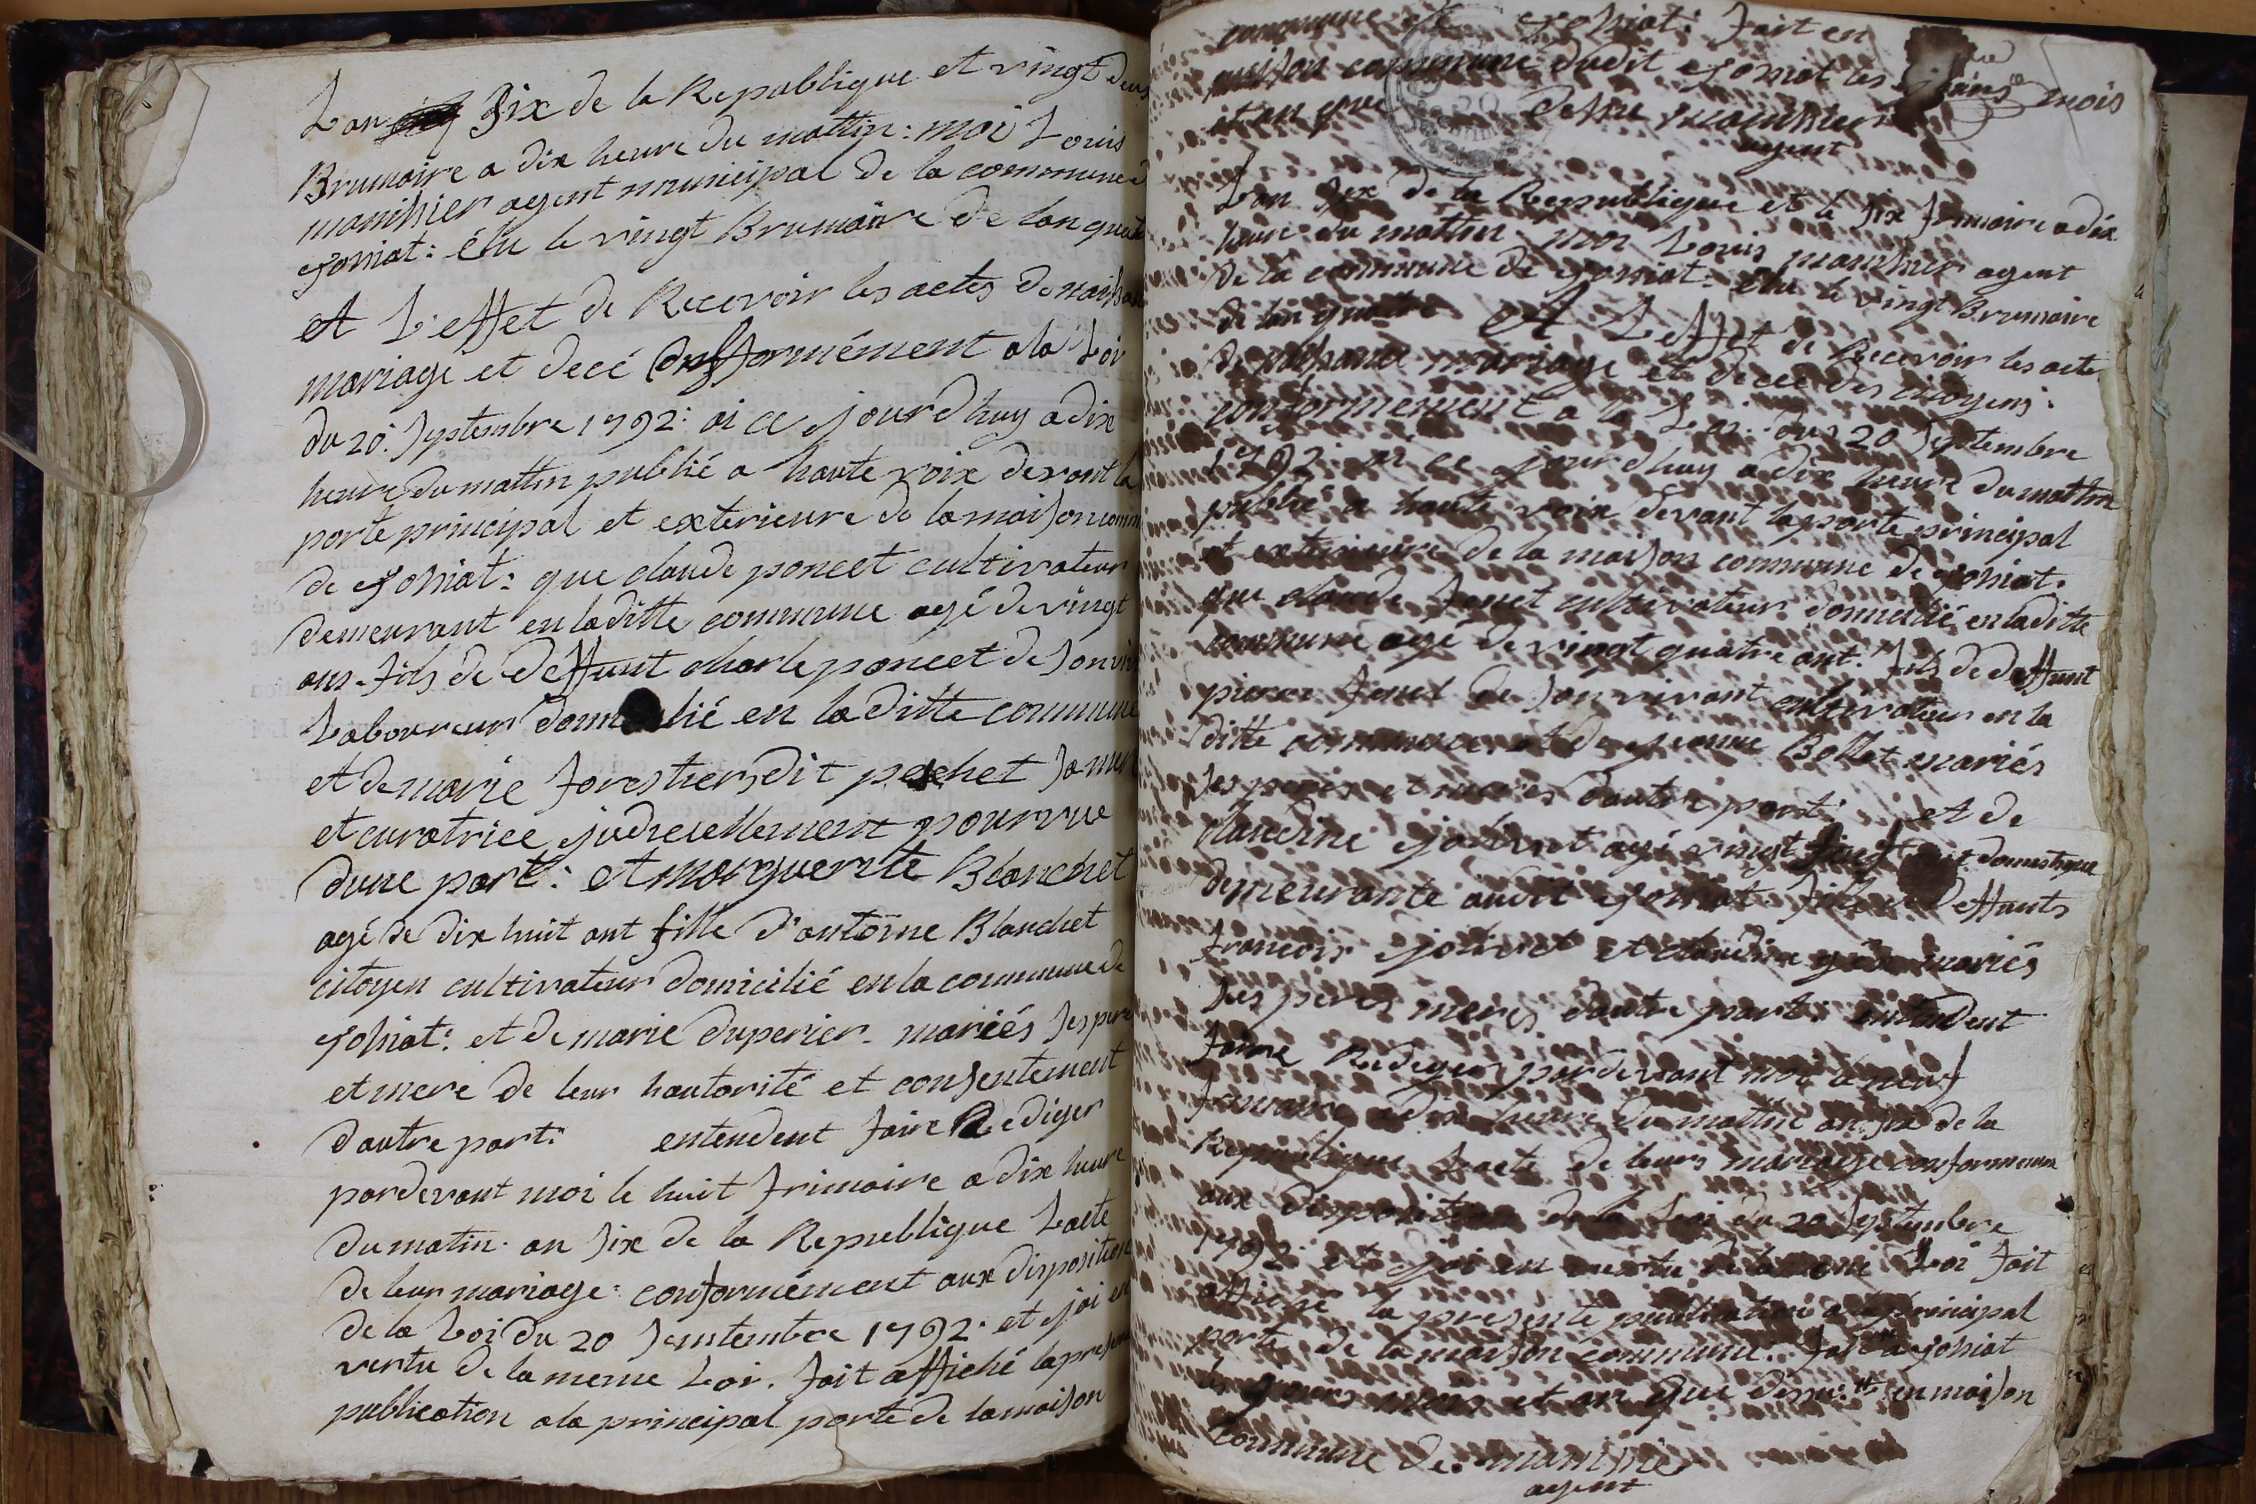 L'an six de la Republique et vingt deux
Brumaire a dix heure du mattin : moi Louis
manihier agent municipal de la commune d
joniat : élu le vingt Brumaire de lan quatre
et L'effet de Recevoir les actes de naissa
mariage et decé Conformément ala Loi
du 20 : Septembre 1792 : ai ce jourdhuy a dix
heure du mattin publié a haute voix devant la
porte principal et exterieure de la maison comm
de joniat : que claude poncet cultivateur
demeurant en laditte commune agé de vingt
ans. fils de deffunt charle poncet de son viv
Laboureur domicilié en la ditte commune
et de marie forestiers dit pechet sa mer
et curatrice judiciellement pourvue
dune part : et marguerite Blanchet
agé de dix huit ant fille d'antoine Blanchet
citoyen cultivateur domicilié en la commune de
joniat : et de marie duperier - mariés ses pere
et mere de leur hautorité et consentement
dautre part : entendent faire Rediger
pardevant moi le huit frimaire a dix heure
du matin. an six de la Republique Lacte
de leur mariage : conformément aux disposition
de la Loi du 20 Semtembre 1792. et jai en
vertu de la meme Loi. fait affiché la presen
publication ala principal porte de la maison
commune de joniat : fait en
maison commune dudit joniat les jours mois
et an que dessue
agent
Lan six de la Republique et le six frimaire a dix
heure du mattin moi Louis manihier agent
de la commune de joniat : élu le vingt Brumaire
de lan quatre et L'effet de Recevoir les acte
de naissance mariage et decée des citoyens :
conformement a la Loi du 20 Septembre
1792 ai ce jourdhuy a dix heure du mattin
publié a haute voix devant la porte principal
et exterieure de la maison commune de joniat.
que claude cultivateur domicilié en laditte
commune agé de vingt quatre ant. fils de deffunt
pierre de son vivant cultivateur en la
ditte commune et de jeanne Bollet mariés
ses peres et meres dautre part : et de
claudine agé vingt domestique
demeurante audit joniat fille de deffunts
francois et claudine mariés
ses peres meres dautre part : entendent
faire Rediger pardevant moi le neuf
frimaire a dix heure du mattin an six de la
Republique Lacte de leurs mariage conformement
aux disposition de la Loi du 20 Septembre
1792 et jai en vertu de la meme Loi fait
affiché la presente publication ala principal
porte de la maison commune. fait a joniat
les jours mois et an que dessue en maison
commune de. manihier
agent